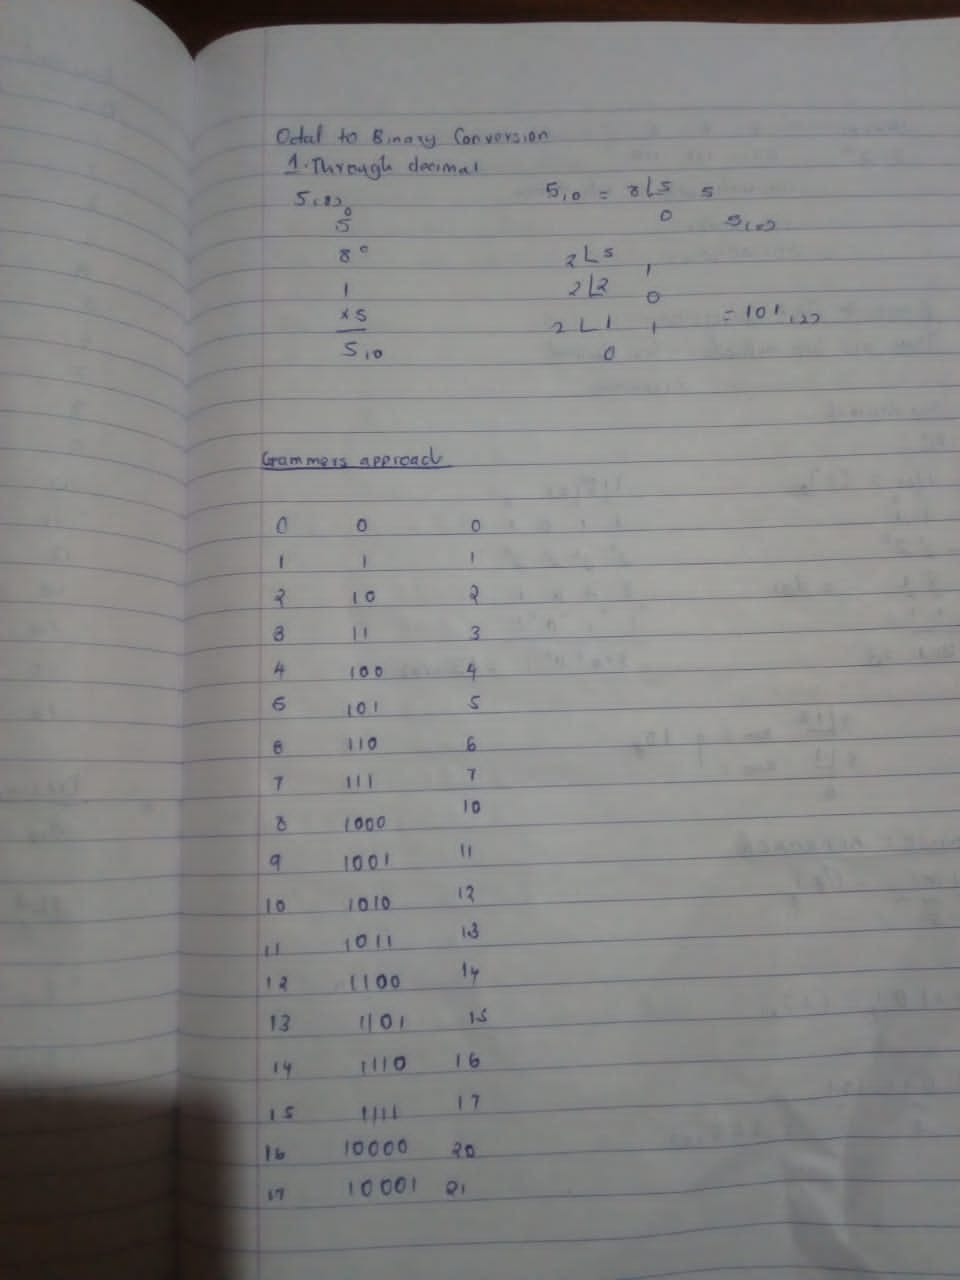 Octal to Binary Conversion
1. Through decimal
5(8) 5₁₀ = 8 5 5
5⁰ 0 5(8)
8⁰ 2 5 1
1 2 2 0
x5 2 1 1 = 101(2)
5₁₀ 0
Grammers approach
0 0 0
1 1 1
2 10 2
3 11 3
4 100 4
5 101 5
6 110 6
7 111 7
8 1000 10
9 1001 11
10 1010 12
11 1011 13
12 1100 14
13 1101 15
14 1110 16
15 1111 17
16 10000 20
17 10001 21